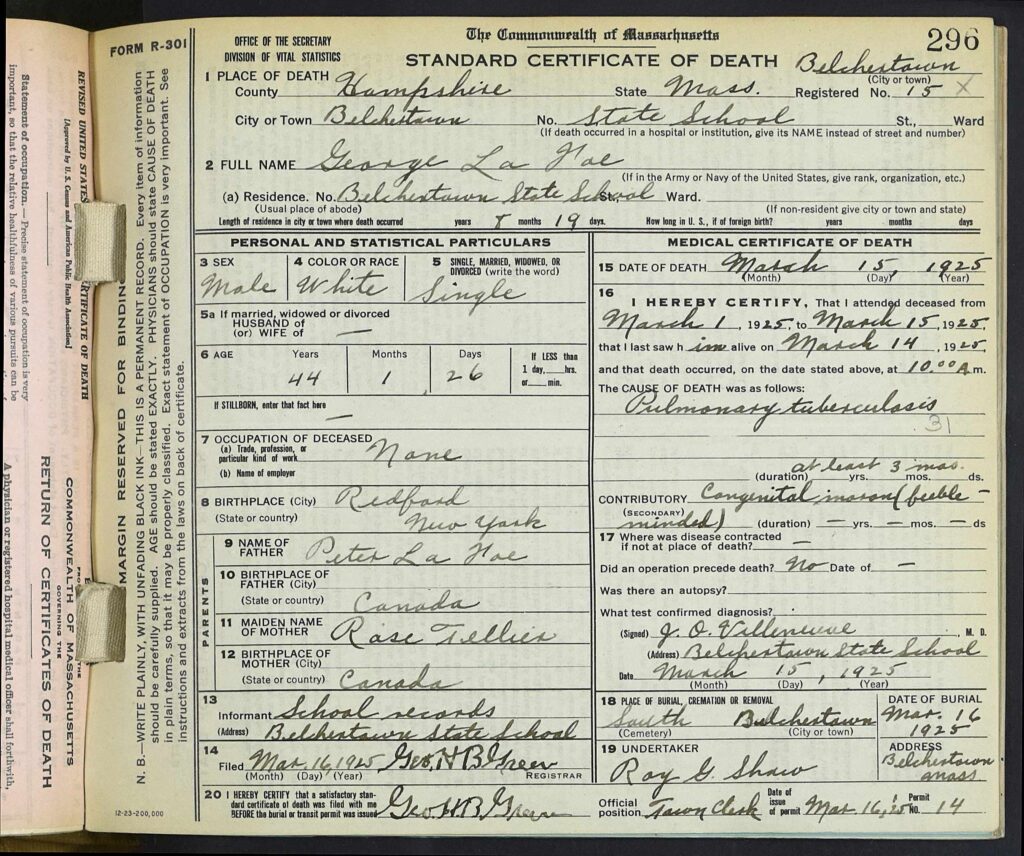 FORM R-301
OFFICE OF THE SECRETARY
DIVISION OF VITAL STATISTICS
The Commonwealth of Massachusetts
STANDARD CERTIFICATE OF DEATH
296
Belchertown
(City or town)
1 PLACE OF DEATH
County Hampshire State Mass. Registered No. 15 X
City or Town Belchertown No. State School St., Ward
(If death occurred in a hospital or institution, give its NAME instead of street and number)
2 FULL NAME George La Foe
(If in the Army or Navy of the United States, give rank, organization, etc.)
(a) Residence. No. Belchertown State School St. Ward.
(Usual place of abode) (If non-resident give city or town and state)
Length of residence in city or town where death occurred years 8 months 19 days. How long in U. S., if of foreign birth? years months days
PERSONAL AND STATISTICAL PARTICULARS
3 SEX
Male
4 COLOR OR RACE
White
5 SINGLE, MARRIED, WIDOWED, OR
DIVORCED (write the word)
Single
5a If married, widowed or divorced
HUSBAND of
(or) WIFE of —
6 AGE Years Months Days If LESS than
44 1 26 1 day,....hrs.
or....min.
If STILLBORN, enter that fact here
—
7 OCCUPATION OF DECEASED
(a) Trade, profession, or
particular kind of work None
(b) Name of employer
8 BIRTHPLACE (City) Redford
(State or country) New York
PARENTS
9 NAME OF
FATHER Peter La Foe
10 BIRTHPLACE OF
FATHER (City)
(State or country) Canada
11 MAIDEN NAME
OF MOTHER Rose Tellier
12 BIRTHPLACE OF
MOTHER (City)
(State or country) Canada
13
Informant School records
(Address) Belchertown State School
14
Filed Mar. 16, 1925 Geo. H B Green
(Month) (Day) (Year) REGISTRAR
MEDICAL CERTIFICATE OF DEATH
15 DATE OF DEATH March 15, 1925
(Month) (Day) (Year)
16
I HEREBY CERTIFY, That I attended deceased from
March 1, 1925, to March 15, 1925,
that I last saw him alive on March 14, 1925,
and that death occurred, on the date stated above, at 10.00 A m.
The CAUSE OF DEATH was as follows:
Pulmonary tuberculosis
31
at least 3 mos.
(duration) yrs. mos. ds.
CONTRIBUTORY Congenital moron (feeble-
(SECONDARY)
minded) (duration) — yrs. — mos. — ds
17 Where was disease contracted
if not at place of death? —
Did an operation precede death? No Date of —
Was there an autopsy?
What test confirmed diagnosis?
(Signed) J. O. Villeneuve, M. D.
(Address) Belchertown State School
Date March 15, 1925
(Month) (Day) (Year)
18 PLACE OF BURIAL, CREMATION OR REMOVAL
South Belchertown
(Cemetery) (City or town)
DATE OF BURIAL
Mar. 16
1925
19 UNDERTAKER
Roy G. Shaw
ADDRESS
Belchertown
Mass
20 I HEREBY CERTIFY that a satisfactory stan-
dard certificate of death was filed with me
BEFORE the burial or transit permit was issued Geo. H. B. Green
Official
position Town Clerk Date of
issue
of permit Mar 16, 25 Permit
No. 14
12-23-200,000
MARGIN RESERVED FOR BINDING
N. B.—WRITE PLAINLY, WITH UNFADING BLACK INK—THIS IS A PERMANENT RECORD. Every item of information
should be carefully supplied. AGE should be stated EXACTLY. PHYSICIANS should state CAUSE OF DEATH
in plain terms, so that it may be properly classified. Exact statement of OCCUPATION is very important. See
instructions and extracts from the laws on back of certificate.
REVISED UNITED STATES CERTIFICATE OF DEATH
[Approved by U. S. Census and American Public Health Association]
Statement of occupation.—Precise statement of occupation is very
important, so that the relative healthfulness of various pursuits can be
COMMONWEALTH OF MASSACHUSETTS
GOVERNING THE
RETURN OF CERTIFICATES OF DEATH
A physician or registered hospital medical officer shall forthwith,